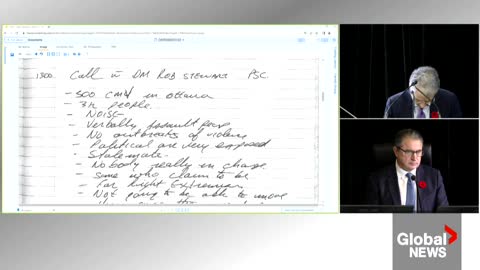 1300 Call w DM Rob Stewart PSC
- 500 CMV in Ottawa
- 3k people
- NOISE
- Verbally assault
- No outbreaks of violence
- Political are very exposed
- Stalemate
- Nobody really in charge
- Some who claim to be
- Far Right Extremism
- Not going to be able to move
Global NEWS